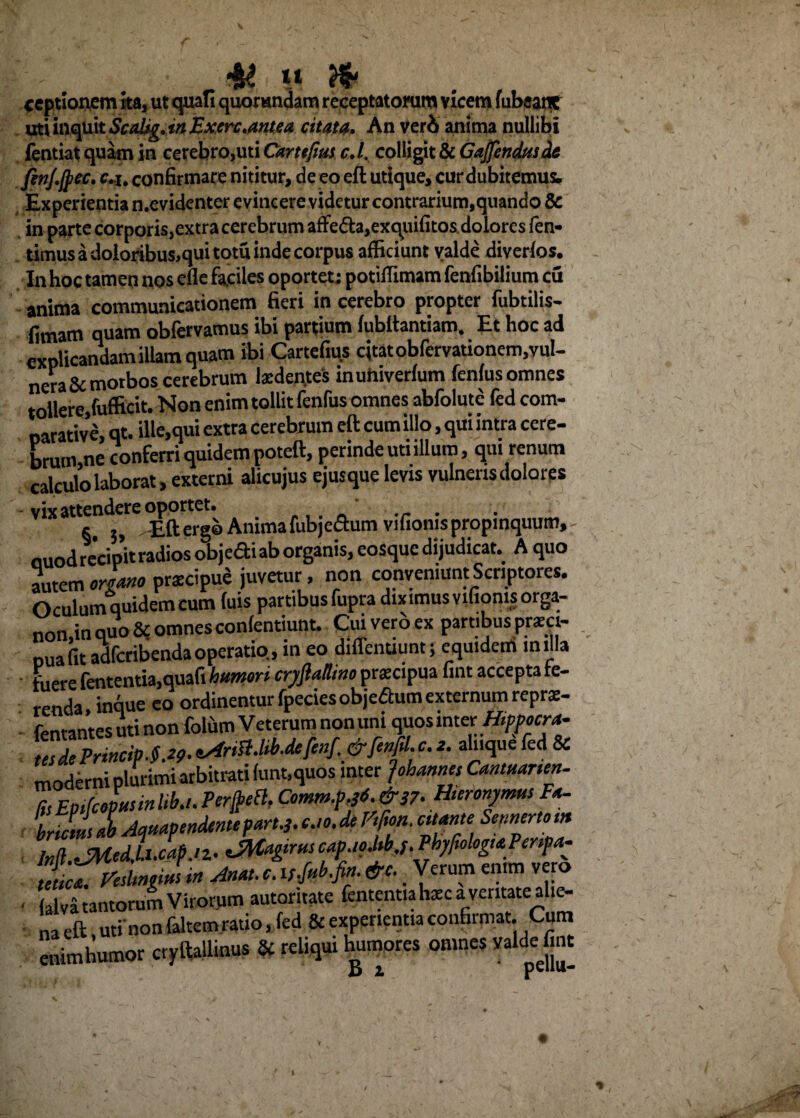 11
ceptionem ita, ut quaſi quorundam receptatorum vicem ſubeant
uti inquit Scalig. in Exerc. antea citata. An verò anima nullibi
ſentiat quàm in cerebro, uti Carteſius c. l. colligit & Gaſſendus de
ſenſ. ſpec. c. 1. confirmare nititur, de eo eſt utique, cur dubitemus.
Experientia n. evidenter evincere videtur contrarium, quando &
in parte corporis, extra cerebrum affecta, exquiſitos dolores ſen-
timus à doloribus, qui totū inde corpus afficiunt valdè diverſos.
In hoc tamen nos eſſe faciles oportet: potiſſimam ſenſibilium cū
anima communicationem fieri in cerebro propter ſubtilis-
ſimam quam obſervamus ibi partium ſubſtantiam. Et hoc ad
explicandam illam quam ibi Carteſius citat obſervationem, vul-
nera & morbos cerebrum lædentes in univerſum ſenſus omnes
tollere, ſufficit. Non enim tollit ſenſus omnes abſolutè ſed com-
parativè, qt. ille, qui extra cerebrum eſt cum illo, qui intra cere-
brum, ne conferri quidem poteſt, perinde uti illum, qui renum
calculo laborat, externi alicujus ejusque levis vulneris dolores
vix attendere oportet.
§. 3, Eſt ergò Anima ſubjectum viſionis propinquum,
quod recipit radios objecti ab organis, eosque dijudicat. A quo
autem organo præcipuè juvetur, non conveniunt Scriptores.
Oculum quidem cum ſuis partibus ſupra diximus viſionis orga-
non, in quo & omnes conſentiunt. Cui verò ex partibus præci-
pua ſit adſcribenda operatio, in eo diſſentiunt; equidem in illa
fuere ſententia, quaſi humori cryſtallino præcipua ſint accepta fe-
renda, inque eo ordinentur ſpecies objectum externum repræ-
ſentantes uti non ſolùm Veterum non uni quos inter Hippocra-
tes de Princip. §. 29. Ariſt. lib. de ſenſ. & ſenſil. c. 2. aliique ſed &
moderni plurimi arbitrati ſunt, quos inter Johannes Cantuarien-
ſis Epiſcopus in lib. 1. Perſpect. Comm. p. 36. & 37. Hieronymus Fa-
bricius ab Aquapendente part. 3. c. 10. de Viſion. citante Sennerto in
Inſt. Med. l. 1. cap. 12. Magirus cap. 10. lib. 5. Phyſiologiæ Peripa-
teticæ. Veslingius in Anat. c. 15. ſub. fin. &c. Verum enim verò
ſalvâ tantorum Virorum autoritate ſententia hæc à veritate alie-
na eſt, uti non ſaltem ratio, ſed & experientia confirmat. Cum
enim humor cryſtallinus & reliqui humores omnes valde ſint
B 2 pellu-